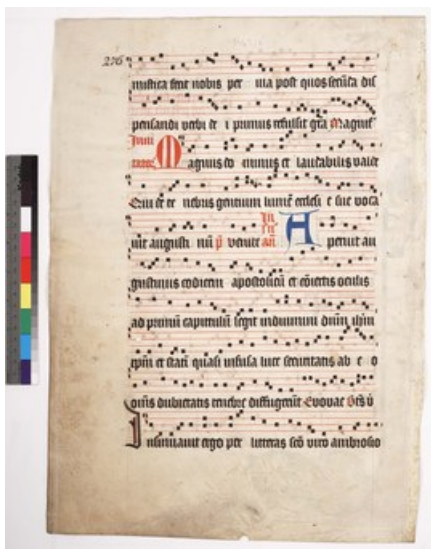 276
mistica fecit nobis per ma post quos secūda dis
pensandi verbi de i primus refulsit gr̄a Magnus
Invi
tator M agnus do minus et laudabilis valde
Qui de te nebris gentium in lumē ecclesi e sue voca
vit augusti nū p̄ venite añ A peruit au
gustinus codicem apostolicū et cōiectis oculis
ad primū capitulū legit induimini dn̄m ih̄m
xp̄m et stati quasi infusa luce securitatis ab e o
om̄is dubietatis tenebre diffugerūt Evovae
Insinuavit ergo per litteras sc̄o viro ambrosio